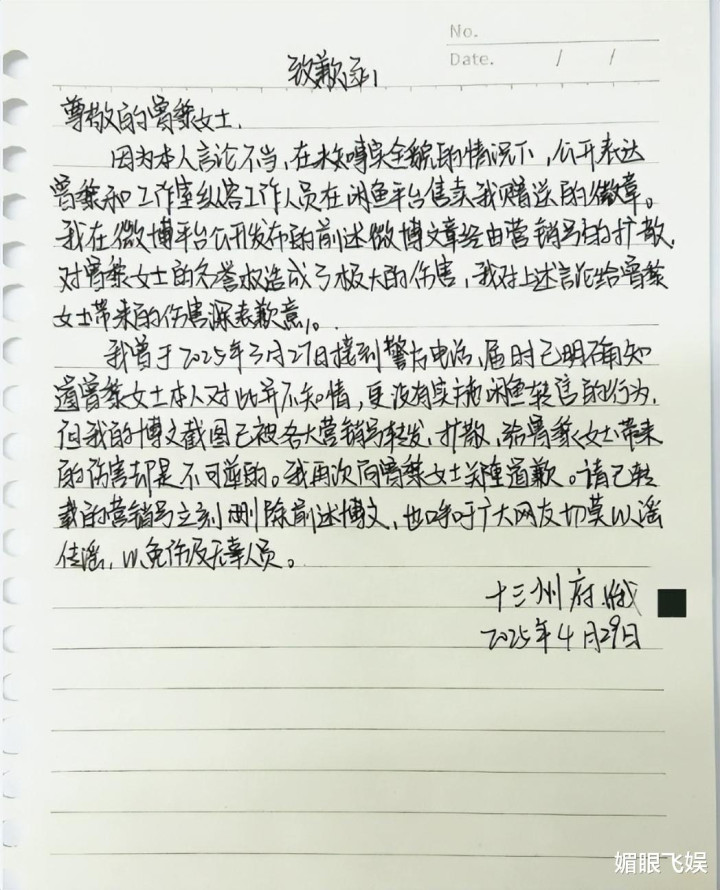 No.
Date. / /
致歉函
尊敬的曾黎女士,
因为本人言论不当,在未知事实全貌的情况下,公开表达
曾黎和工作室纵容工作人员在闲鱼平台售卖我赠送的徽章。
我在微博平台公开发布的前述微博文章经由营销号的扩散,
对曾黎女士的名誉权造成了极大的伤害,我对上述言论给曾黎
女士带来的伤害深表歉意。
我曾于2025年3月27日接到警方电话,届时已明确知
道曾黎女士本人对此并不知情,更没有实施闲鱼转售的行为,
但我的博文截图已被各大营销号转发,扩散,给曾黎女士带来
的伤害却是不可逆的。我再次向曾黎女士郑重道歉。请已转
载的营销号立刻删除前述博文,也呼吁广大网友切莫以谣
传谣,以免伤及无辜人员。
十三州府
2025年4月29日
媚眼飞娱